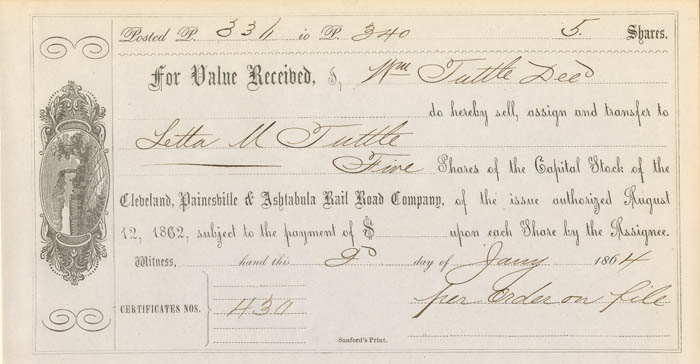 Posted P. 336 to P. 340 5 Shares.
For Value Received, I, Wm Tuttle Decd
do hereby sell, assign and transfer to
Letta M Tuttle
Five Shares of the Capital Stock of the
Cleveland, Painesville & Ashtabula Rail Road Company, of the issue authorized August
12, 1862, subject to the payment of $ upon each Share by the Assignee.
Witness, hand this 2d day of Jany 1864
per Order on file
CERTIFICATES NOS. 430
Sanford's Print.